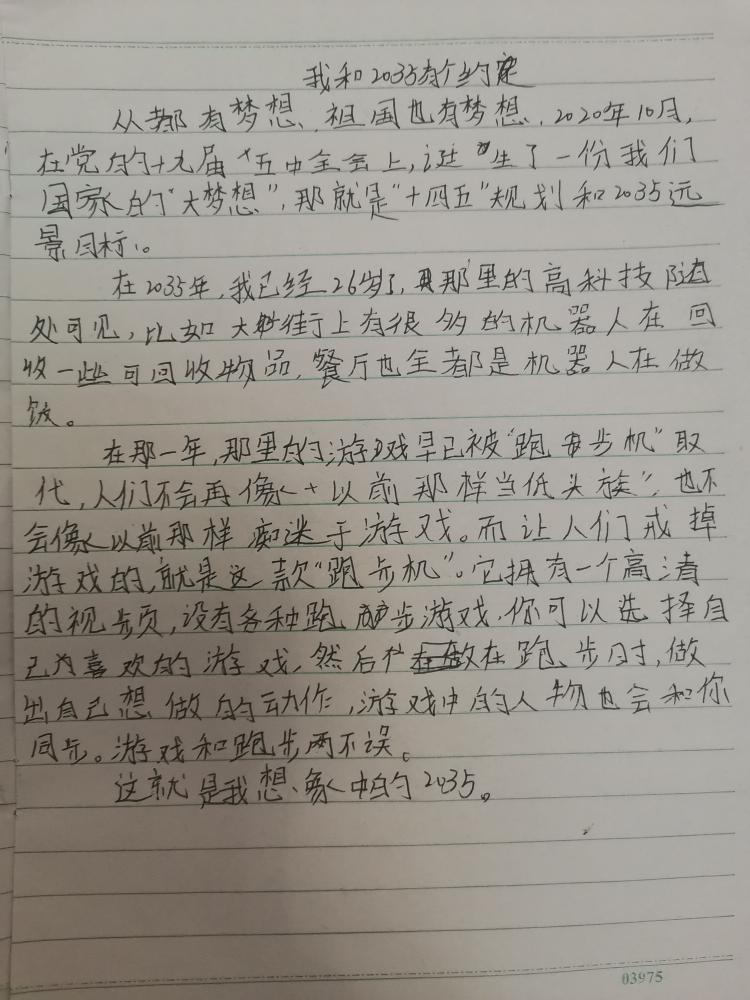 我和2035有个约定
从都有梦想,祖国也有梦想,2020年10月,
在党的十九届五中全会上,诞生了一份我们
国家的“大梦想”,那就是“十四五”规划和2035远
景目标。
在2035年,我已经26岁了,那里的高科技随
处可见,比如大街上有很多的机器人在回
收一些可回收物品,餐厅也全都是机器人在做
饭。
在那一年,那里的游戏早已被“跑步机”取
代,人们不会再像以前那样当低头族”,也不
会像以前那样痴迷于游戏。而让人们戒掉
游戏的,就是这款“跑步机”。它拥有一个高清
的视频,设有各种跑步游戏,你可以选择自
己喜欢的游戏,然后在跑步时,做
出自己想做的动作,游戏中的人物也会和你
同步。游戏和跑步两不误。
这就是我想象中的2035。
03975